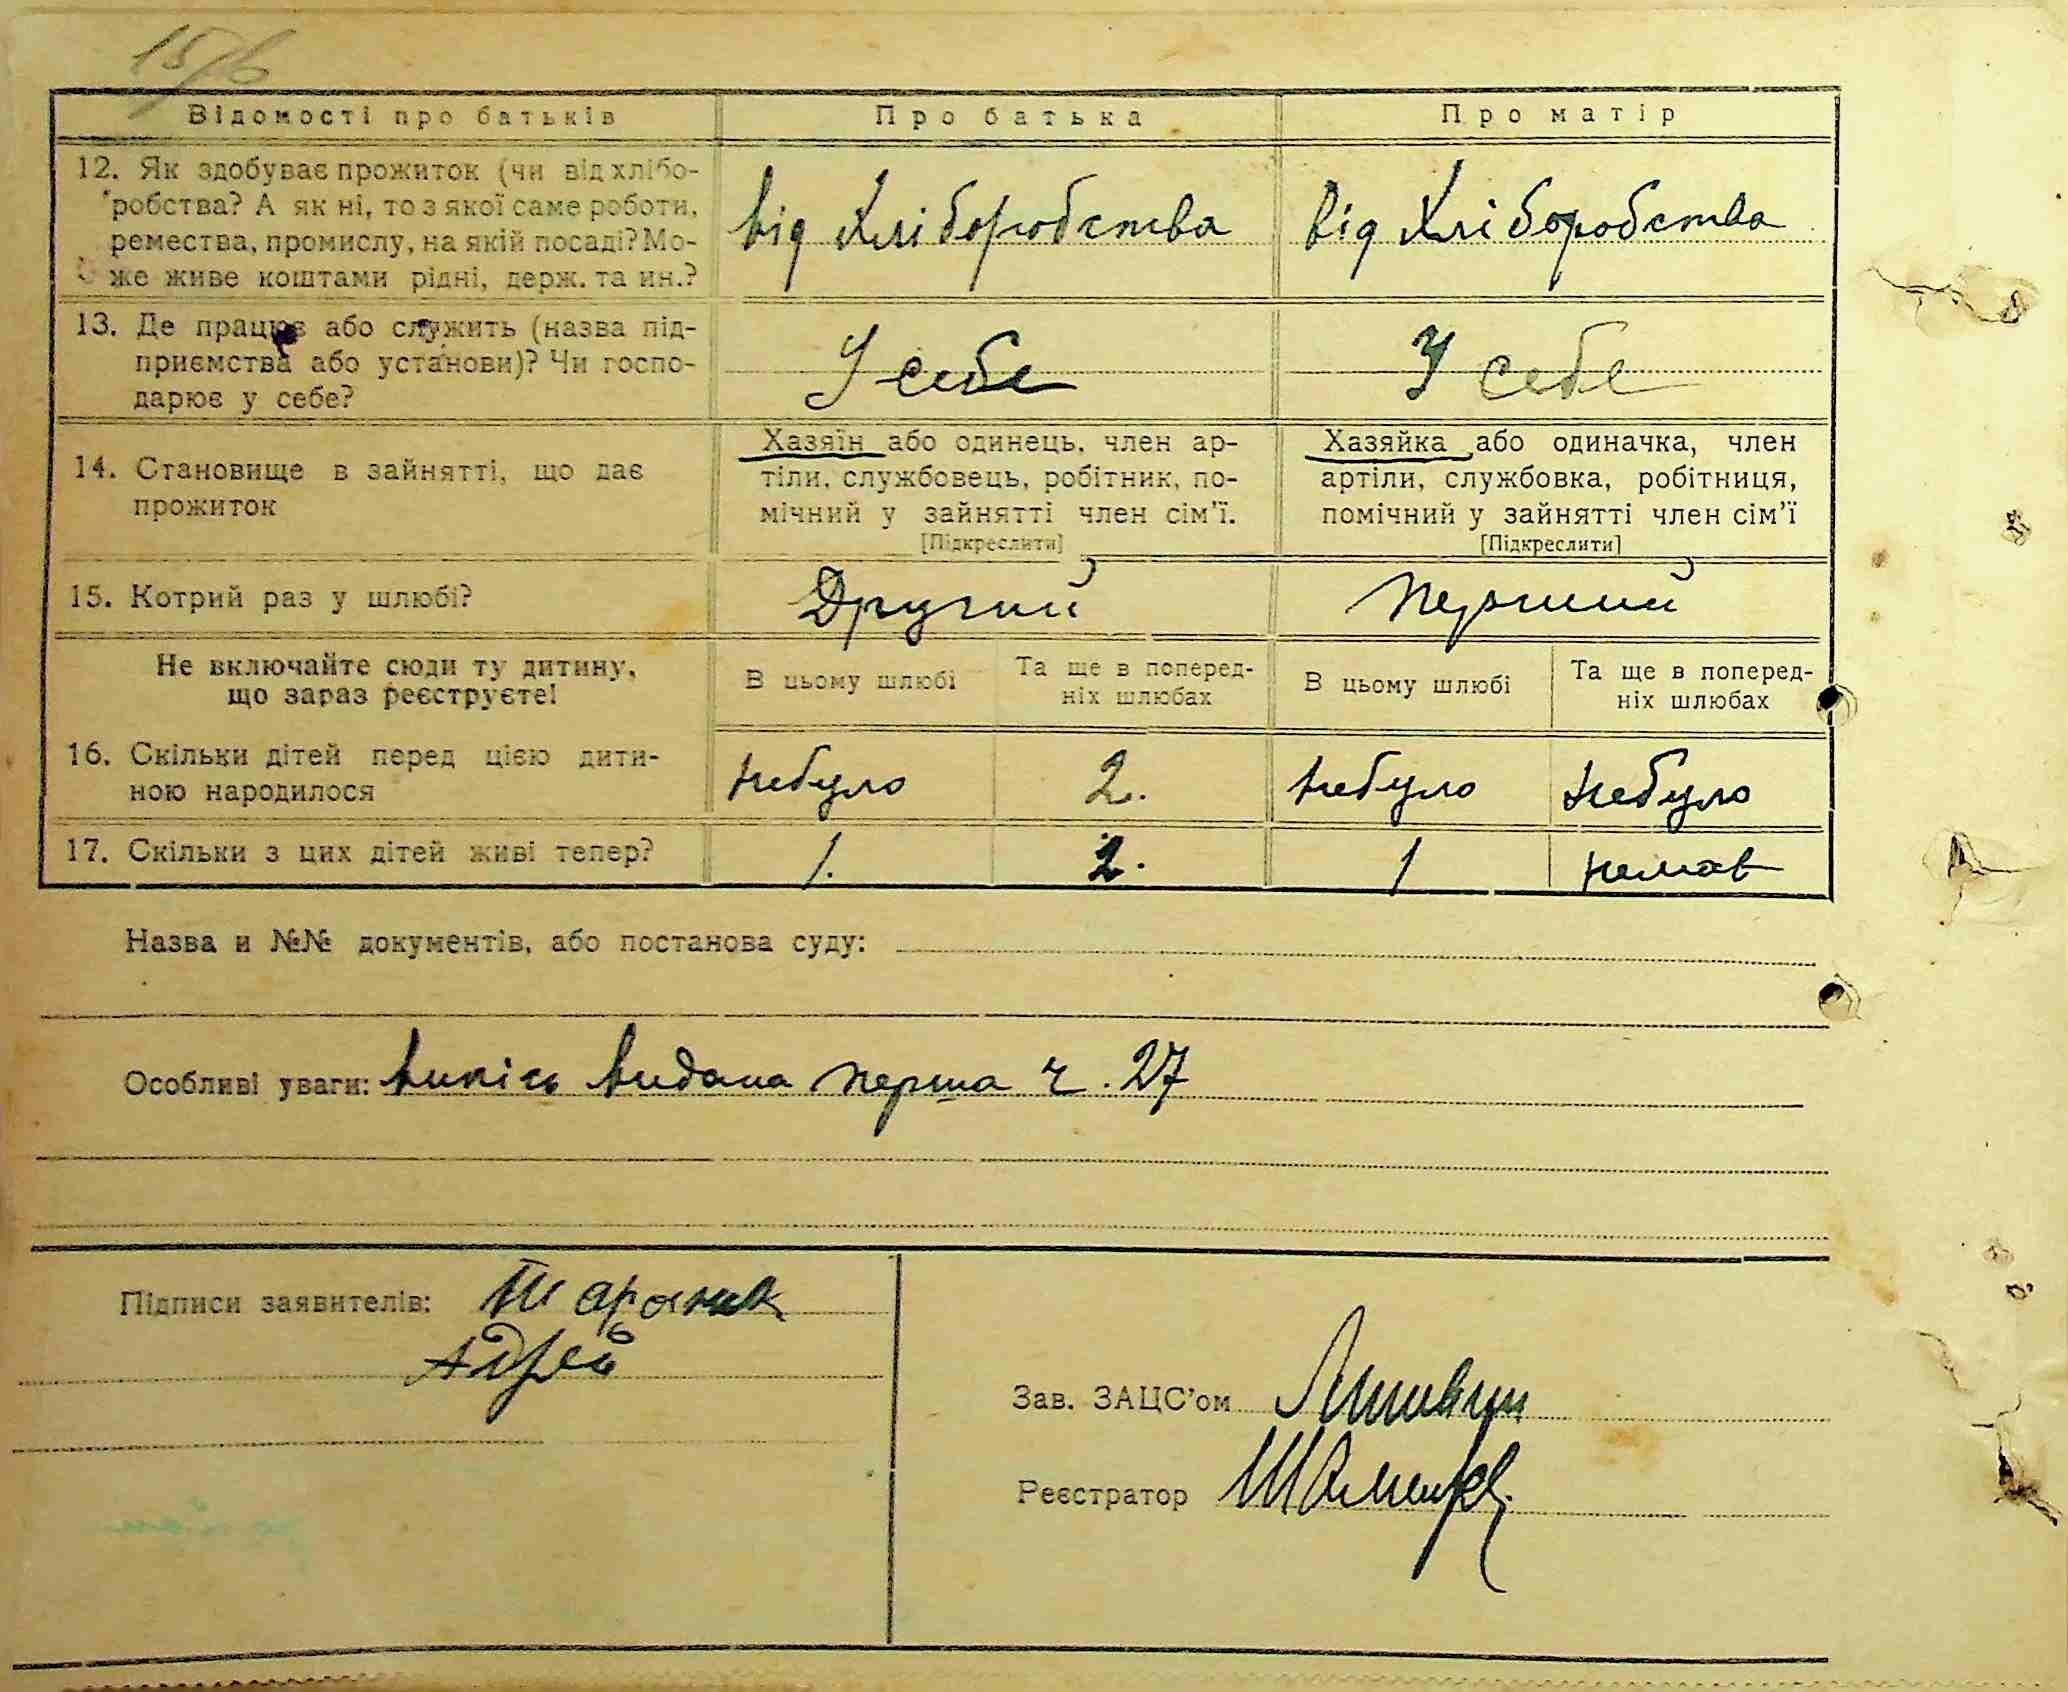 15/6
Відомості про батьків Про батька Про матір
12. Як здобуває прожиток (чи від хлібо-
робства? А як ні, то з якої саме роботи,
ремества, промислу, на якій посаді? Мо-
же живе коштами рідні, держ. та ин.?
від Хліборобства від Хліборобства
13. Де працює або служить (назва під-
приємства або установи)? Чи госпо-
дарює у себе?
У себе У себе
14. Становище в зайнятті, що дає
прожиток
Хазяїн або одинець, член ар-
тіли, службовець, робітник, по-
мічний у зайнятті член сім'ї.
[Підкреслити]
Хазяйка або одиначка, член
артіли, службовка, робітниця,
помічний у зайнятті член сім'ї
[Підкреслити]
15. Котрий раз у шлюбі? Другий Перший
Не включайте сюди ту дитину,
що зараз реєструєте!
В цьому шлюбі
Та ще в поперед-
ніх шлюбах
В цьому шлюбі
Та ще в поперед-
ніх шлюбах
16. Скільки дітей перед цією дити-
ною народилося
небуло 2. небуло небуло
17. Скільки з цих дітей живі тепер? 1. 2. 1 немає
Назва и №№ документів, або постанова суду:
Особливі уваги: випісь видана перша ч. 27
Підписи заявителів:
Зав. ЗАЦС'ом
Реєстратор